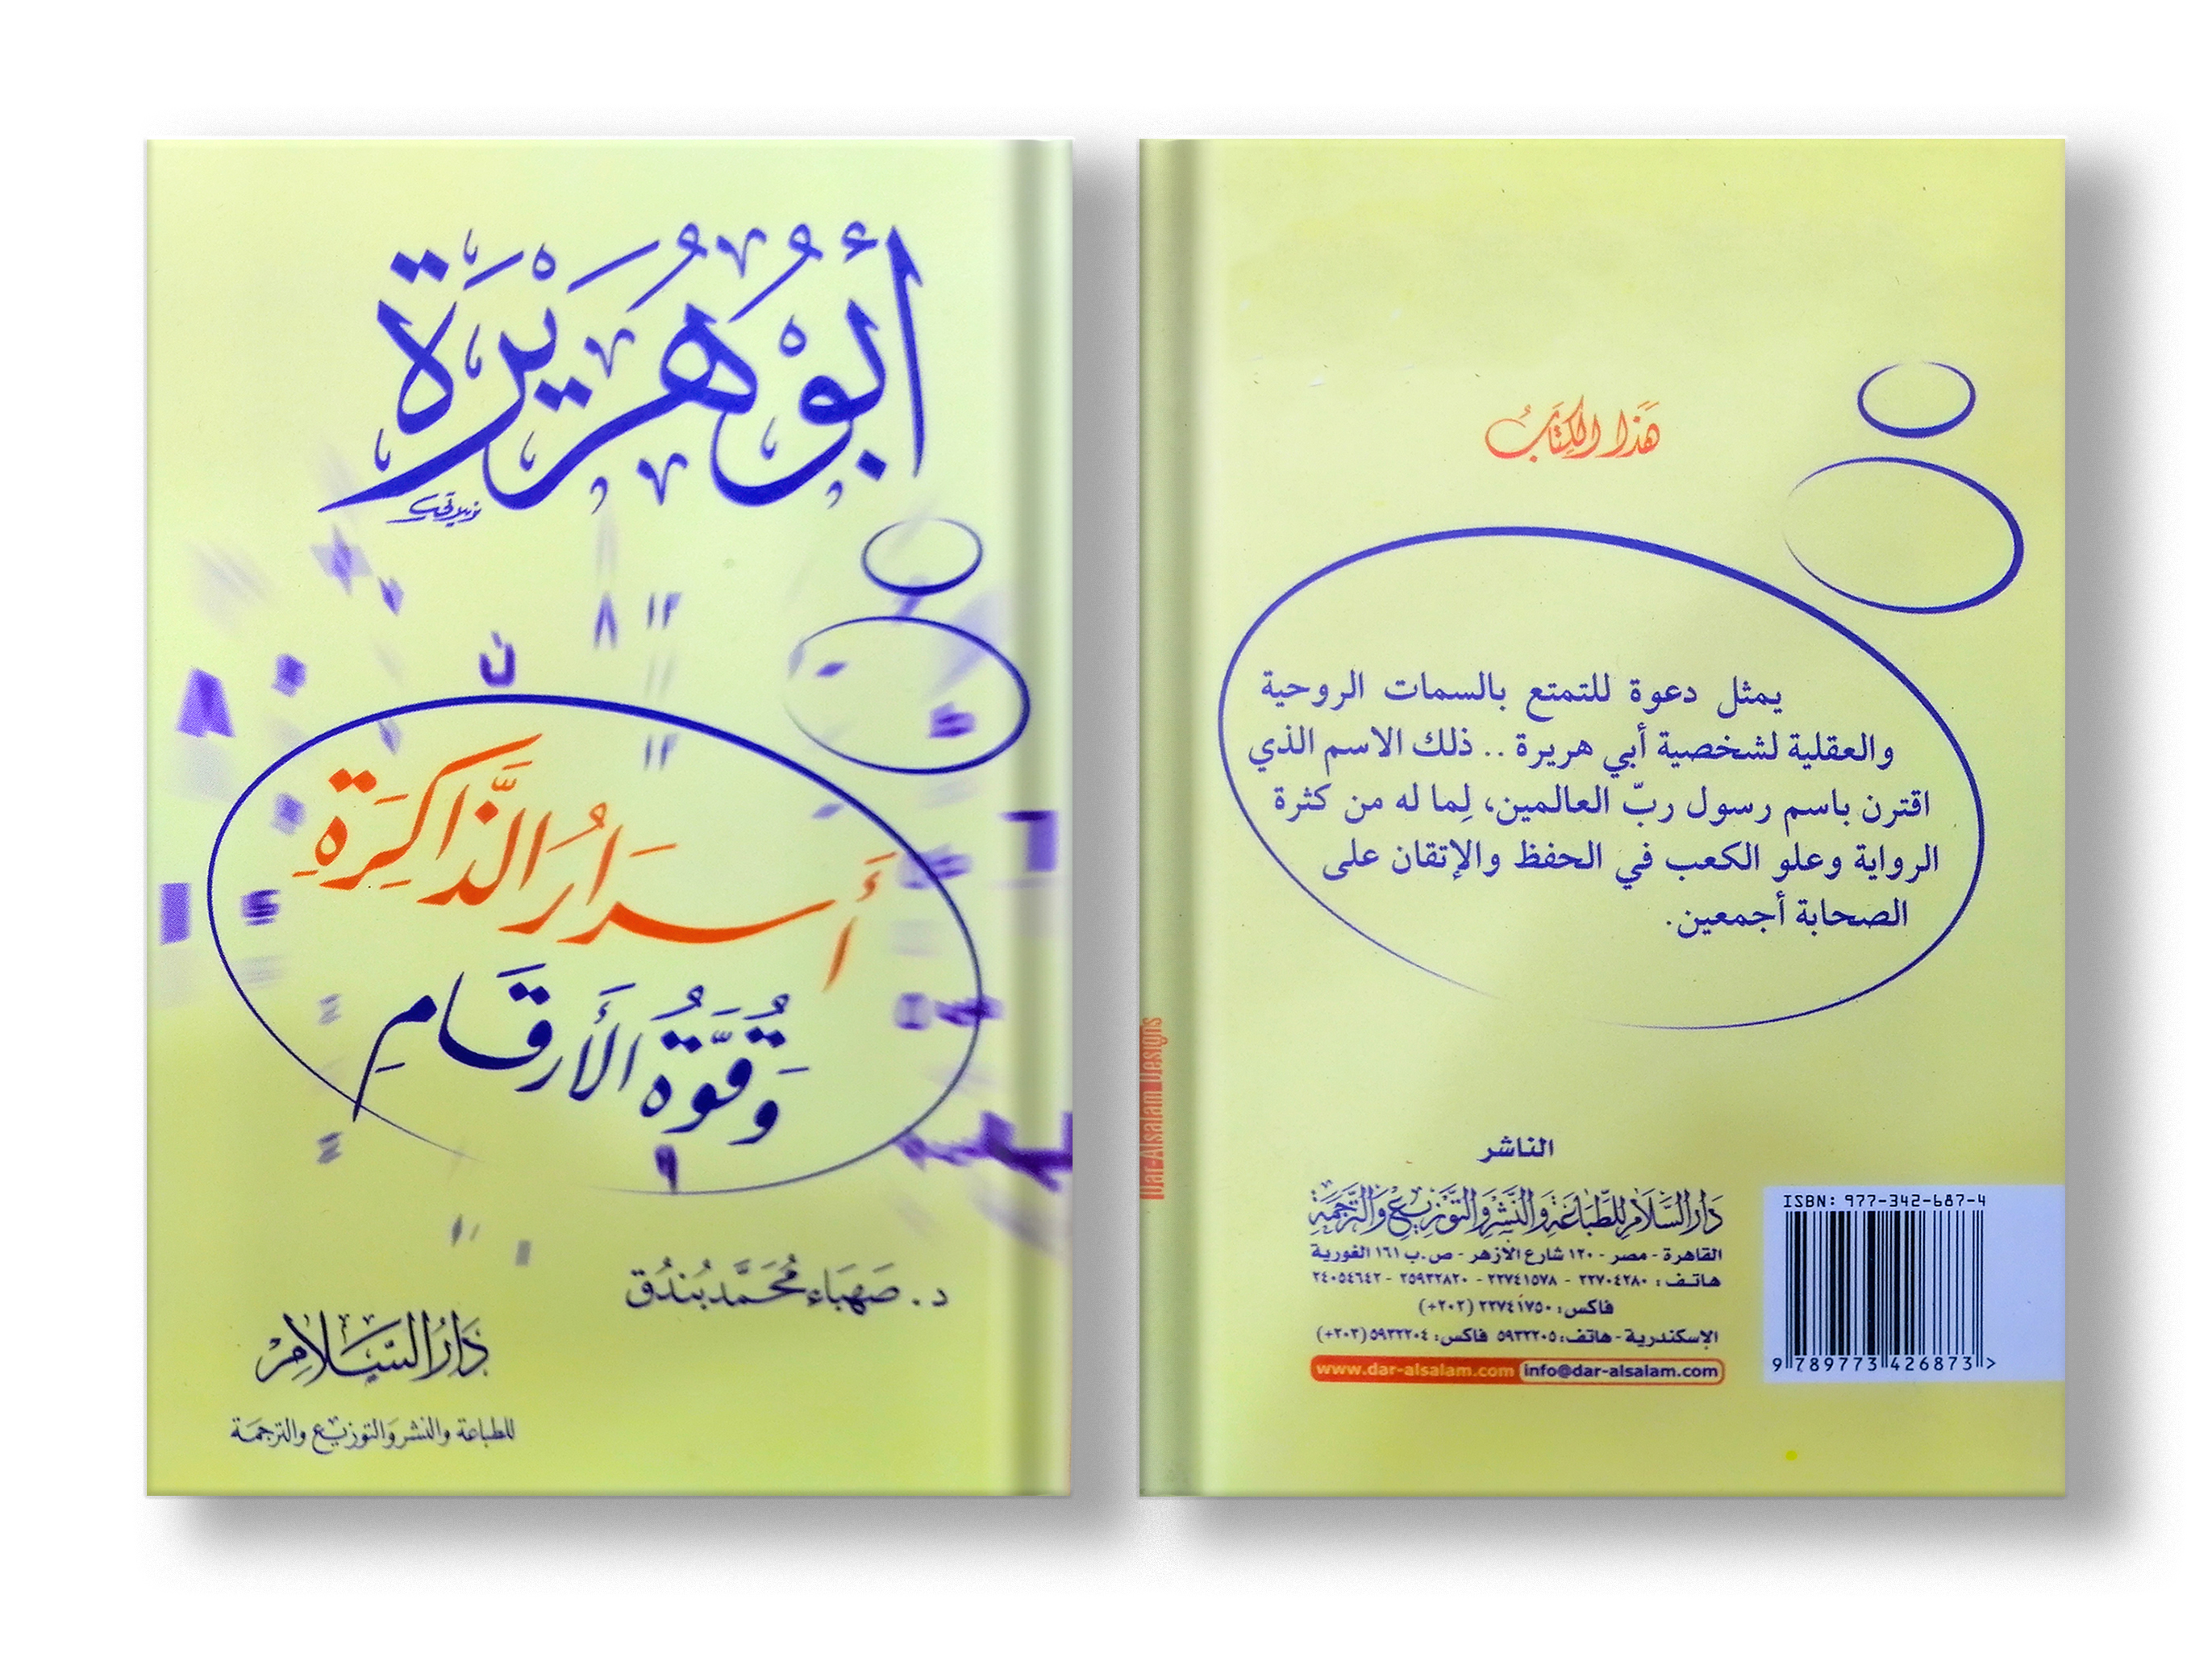 أَبُو هُرَيْرَة
أَسرَارُ الذَّاكِرَةِ
وَقُوَّةُ الأَرقَامِ
د. صَهبَاء مُحَمَّد بُندُق
دَارُ السَّلَامِ
للطباعة والنشر والتوزيع والترجمة
هَذَا الكِتَابُ
يمثل دعوة للتمتع بالسمات الروحية
والعقلية لشخصية أبي هريرة .. ذلك الاسم الذي
اقترن باسم رسول ربّ العالمين، لِما له من كثرة
الرواية وعلو الكعب في الحفظ والإتقان على
الصحابة أجمعين.
Dar-Alsalam Designs
الناشر
دَارُ السَّلَامِ لِلطِّبَاعَةِ وَالنَّشْرِ وَالتَّوْزِيعِ وَالتَّرْجَمَةِ
القاهرة - مصر - ١٢٠ شارع الأزهر - ص.ب ١٦١ الغورية
هاتف: ٢٢٧٠٤٢٨٠ - ٢٢٧٤١٥٧٨ - ٢٥٩٣٢٨٢٠ - ٢٤٠٥٤٦٤٢
فاكس: ٢٢٧٤١٧٥٠ (٢٠٢+)
الإسكندرية - هاتف: ٥٩٣٢٢٠٥ فاكس: ٥٩٣٢٢٠٤ (٢٠٣+)
www.dar-alsalam.com info@dar-alsalam.com
ISBN: 977-342-687-4
9 789773 426873 >